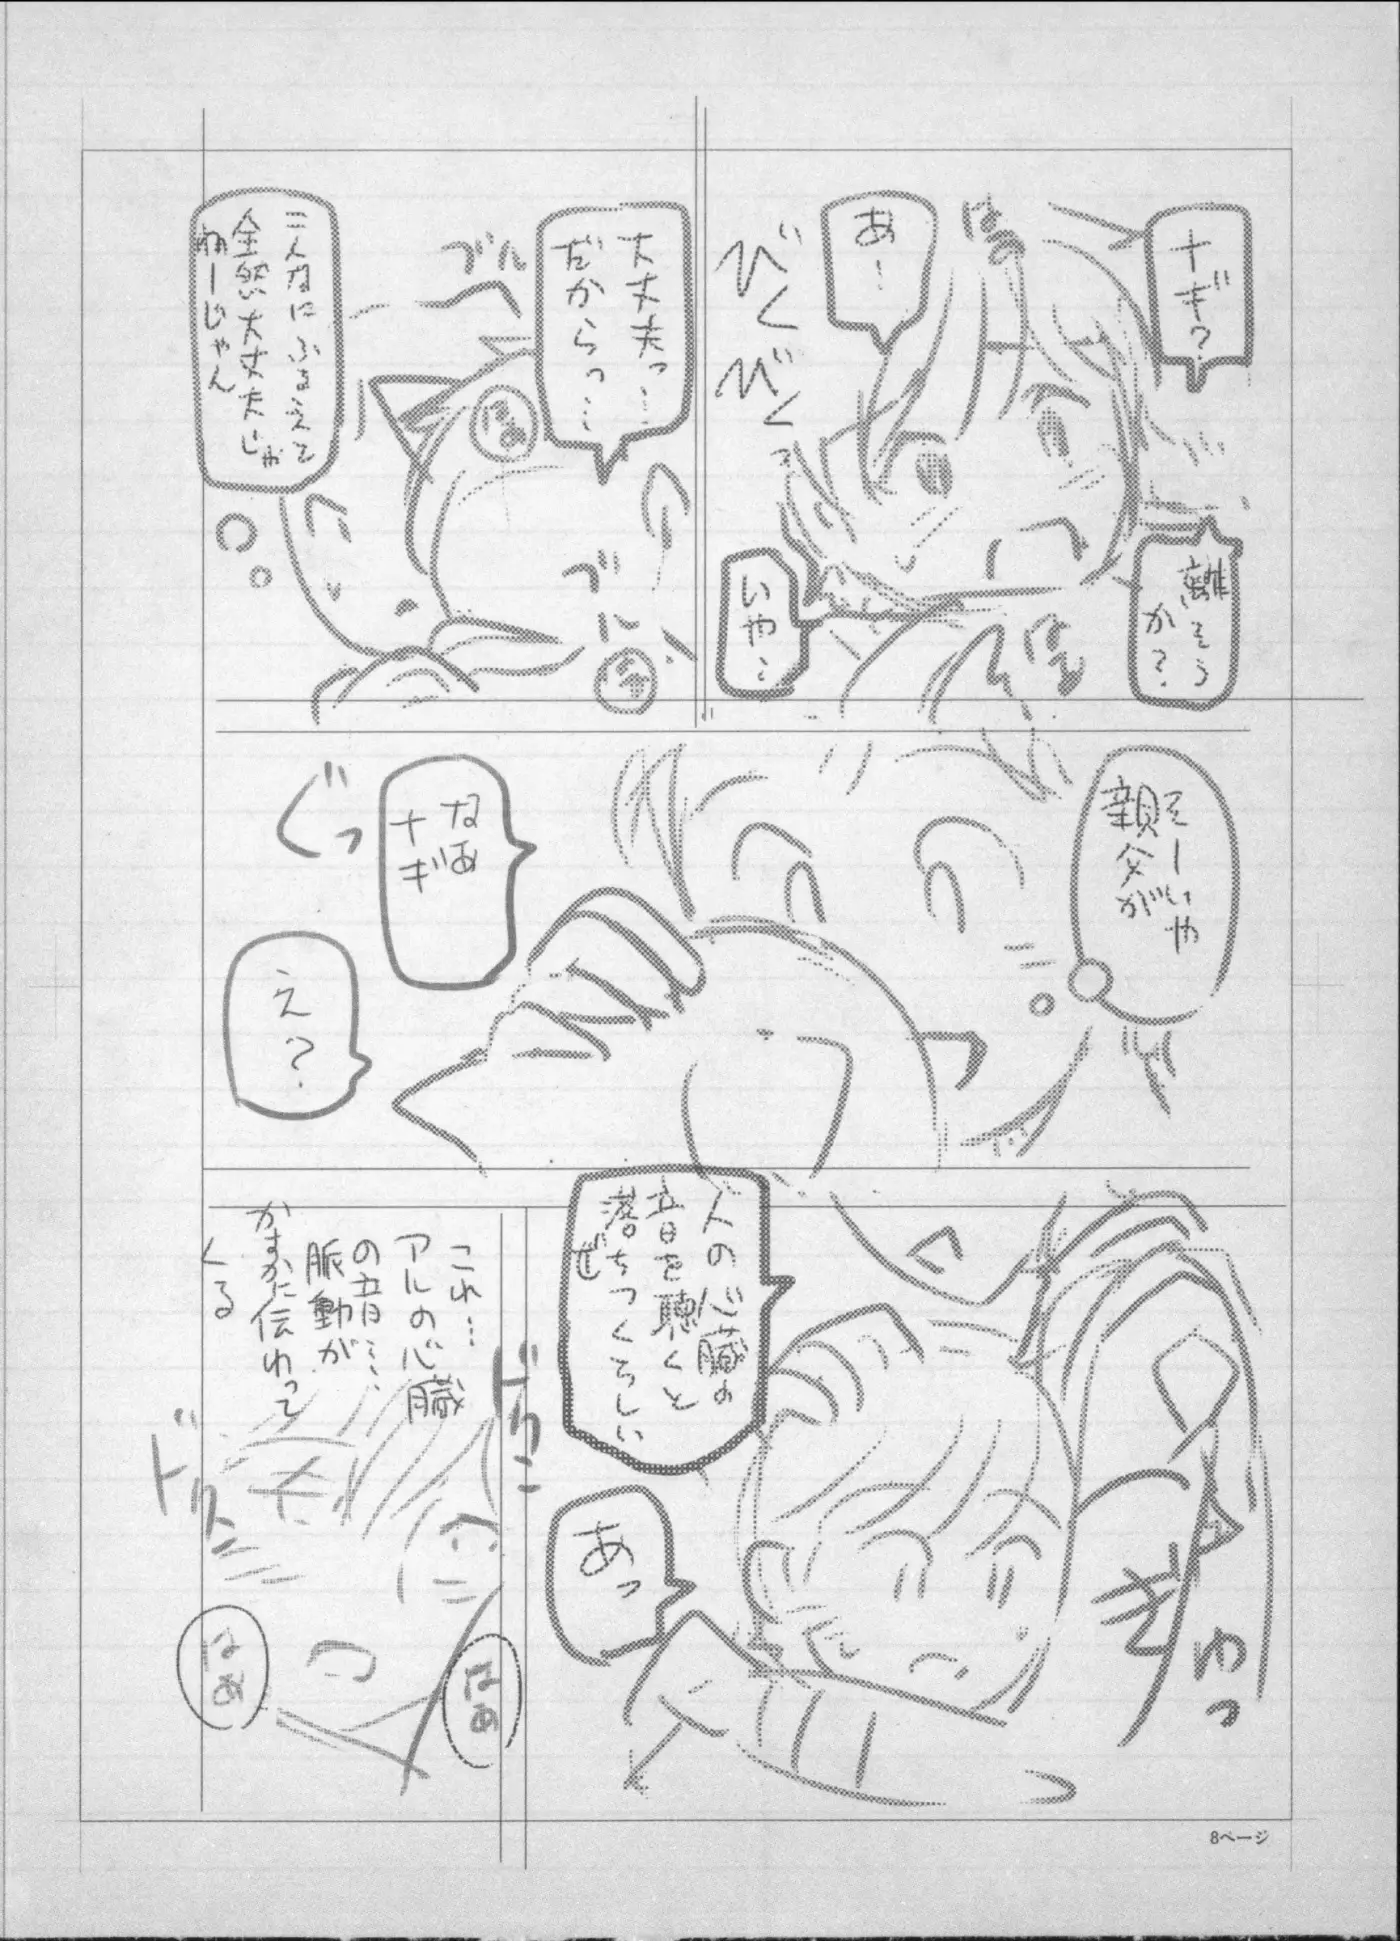 ナギ?
はぁ
あ…
びくびく
離そう
か?
はぁ
いや…
大丈夫っ…
だからっ…
ブル
はぁ
ブル
はぁ
こんなにふるえて
全然大丈夫じゃ
ねーじゃん
そーいや
親父が
なあ
ナギ
ぐっ
え?
人の心臓の
音を聴くと
落ちつくらしい
ぜ
あっ
ぎゅっ
これ…
アルの心臓
の音…
脈動が
かすかに伝わって
くる
ドクン
はぁ
はぁ
8ページ